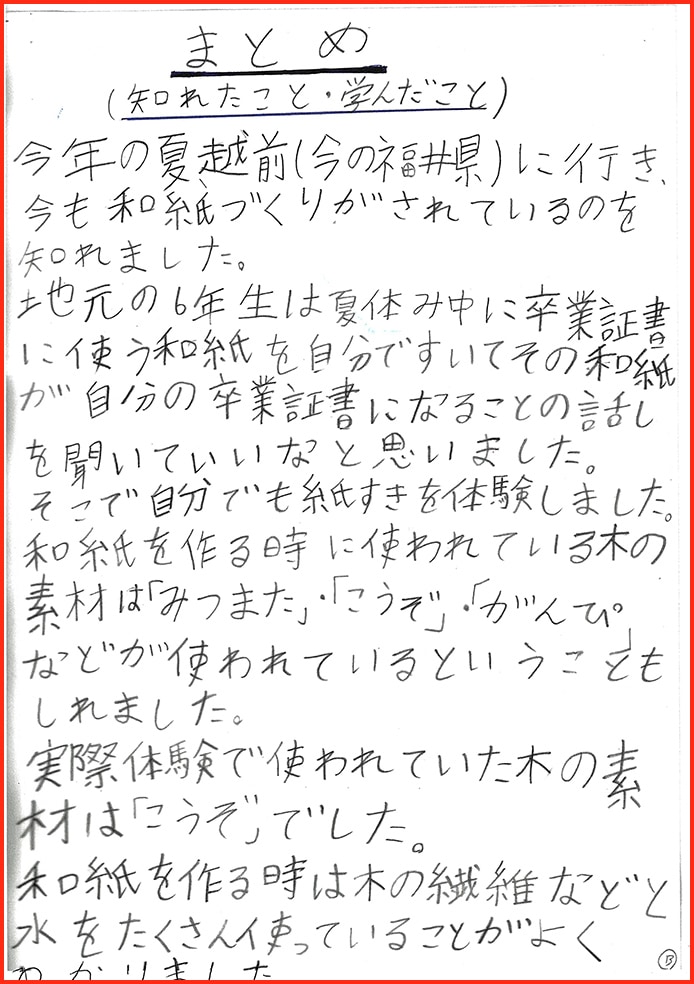 まとめ
(知れたこと・学んだこと)
今年の夏越前(今の福井県)に行き、
今も和紙づくりがされているのを
知れました。
地元の6年生は夏休み中に卒業証書
に使う和紙を自分ですいてその和紙
が自分の卒業証書になることの話し
を聞いていいなと思いました。
そこで自分でも紙すきを体験しました。
和紙を作る時に使われている木の
素材は「みつまた」・「こうぞ」・「がんぴ」
などが使われているということも
しれました。
実際体験で使われていた木の素
材は「こうぞ」でした。
和紙を作る時は木の繊維などと
水をたくさん使っていることがよく
わかりました
⑬